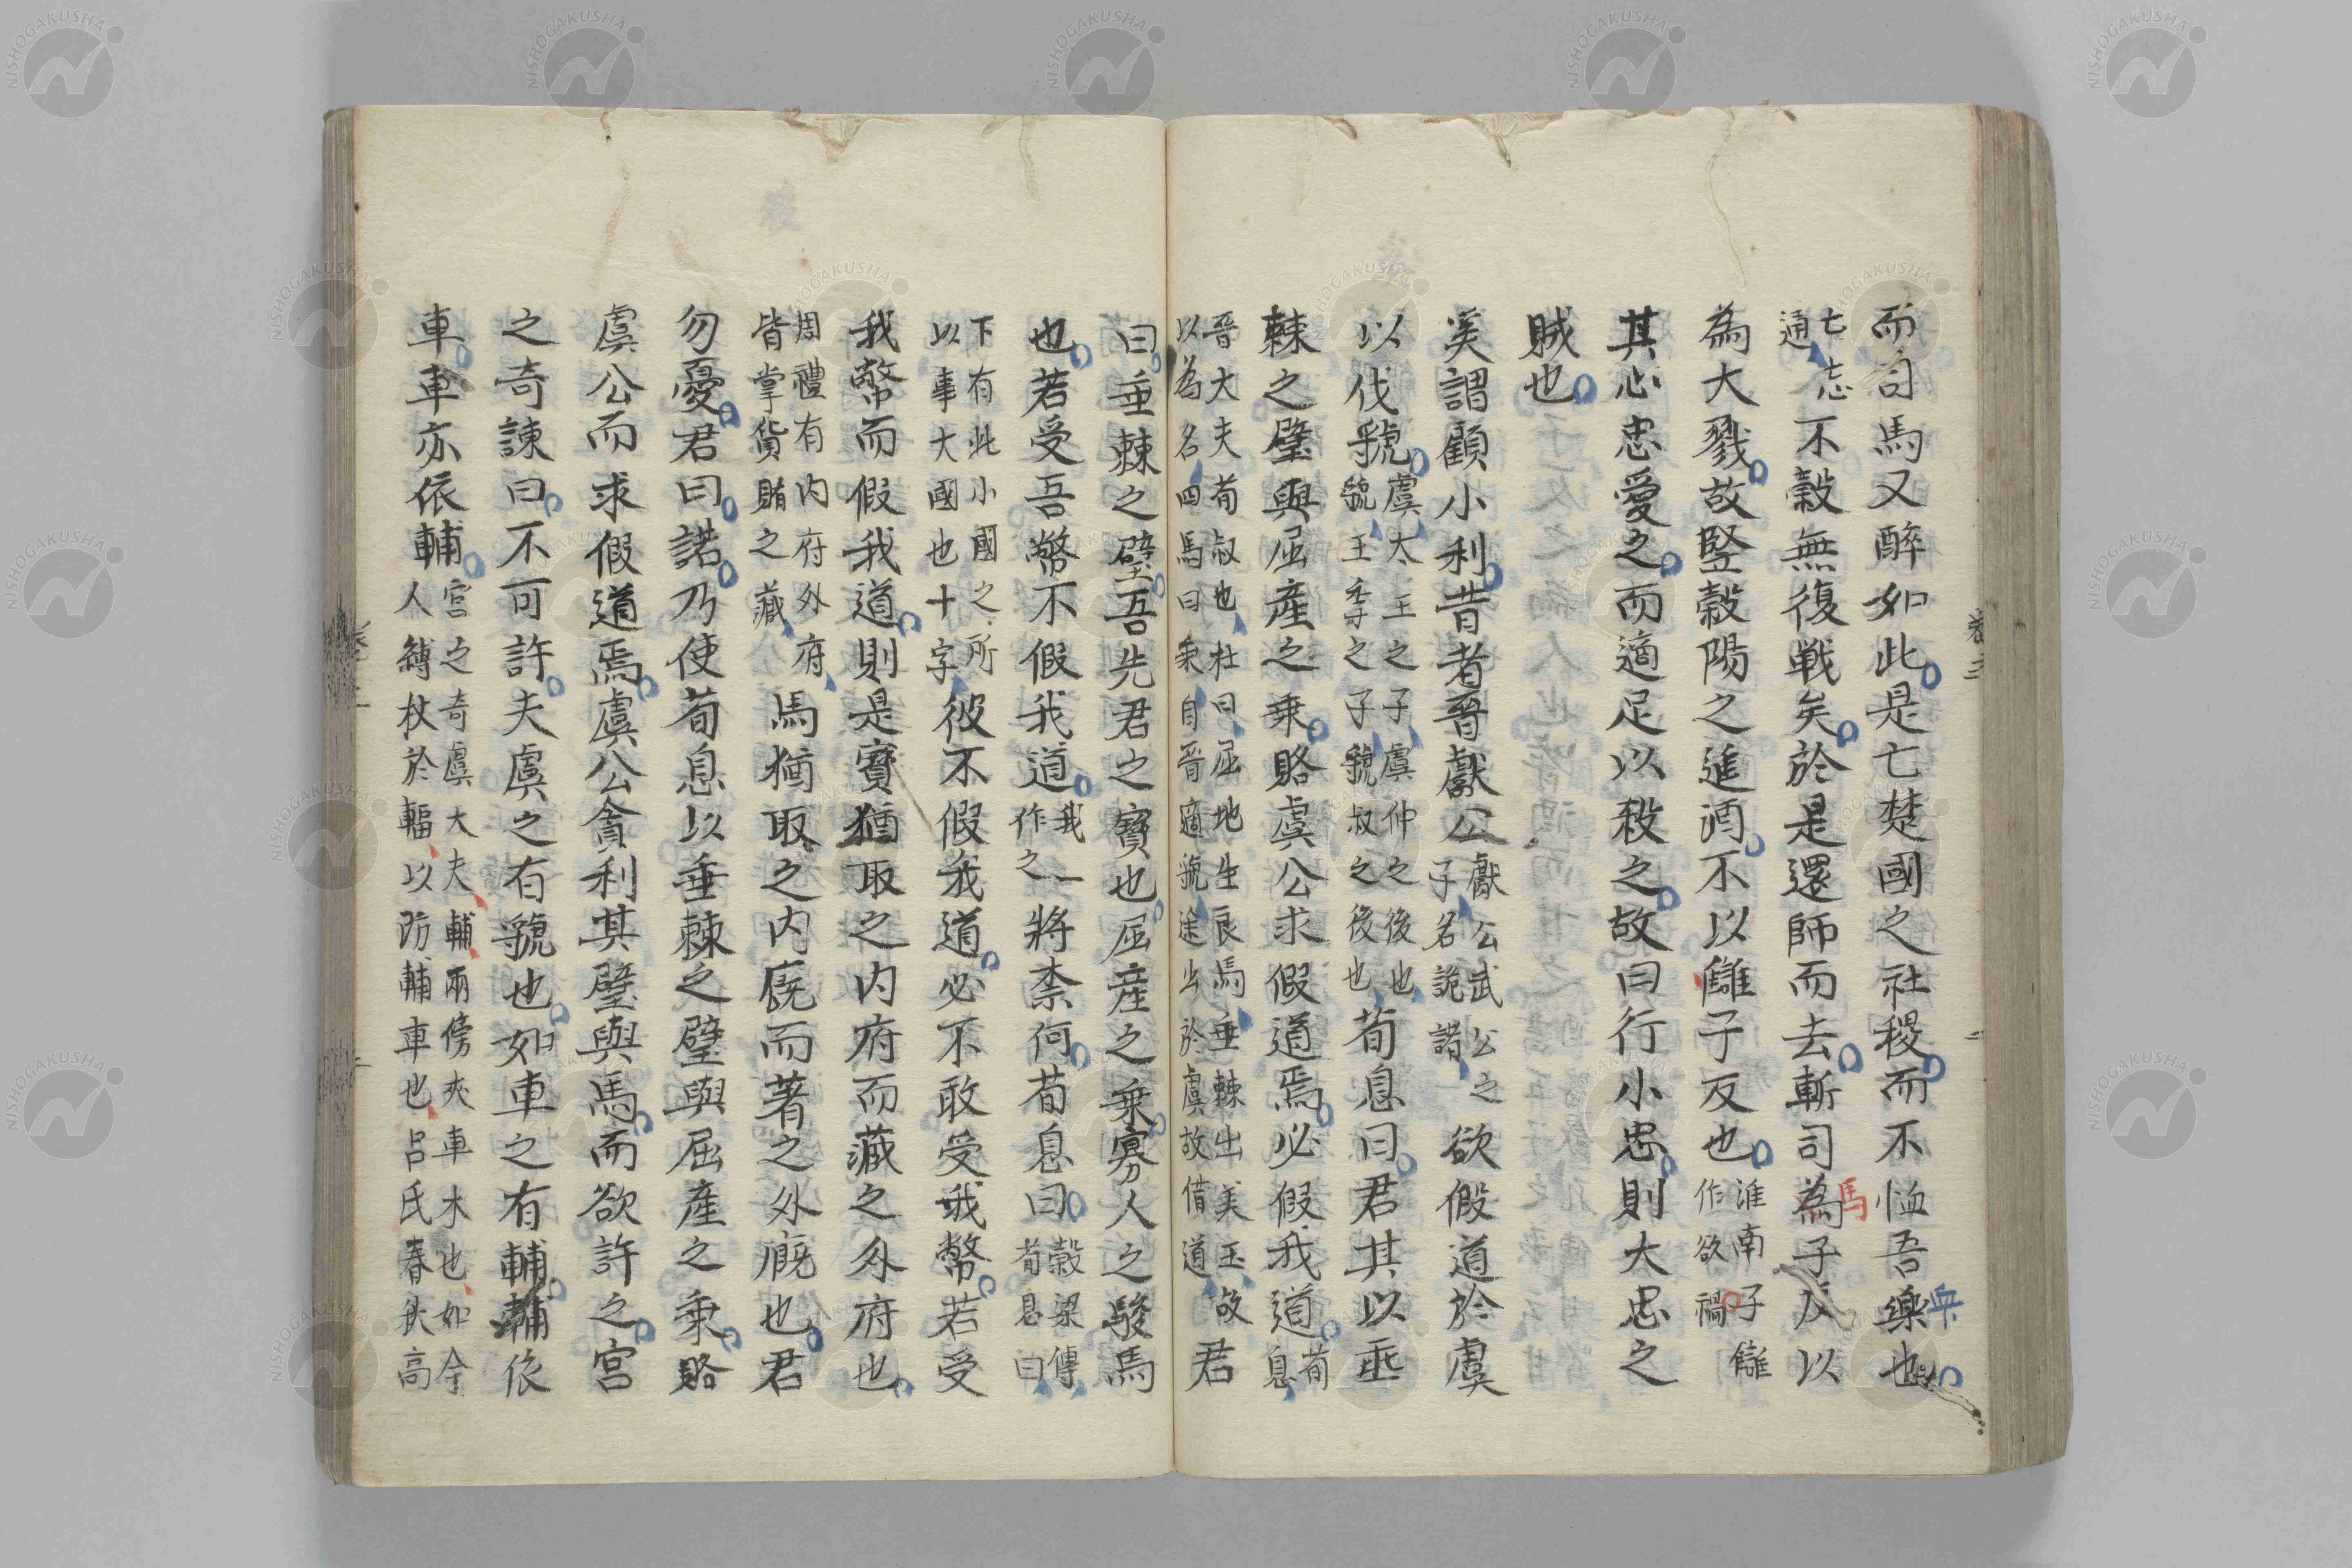 而司馬又醉如此是亡楚國之社稷而不恤吾樂也
衆
亡忘
通
不穀無復戦矣於是還師而去斬司為子反以
馬
為大戮故竪穀陽之進酒不以讎子反也
淮南子讎
作欲禍
其心忠愛之而適足以殺之故曰行小忠則大忠之
賊也
奚謂顧小利昔者晉獻公
獻公武公之
子名詭諸
欲假道於虞
以伐虢
虞太王之子虞仲之後也
虢王季之子虢叔之後也
荀息曰君其以垂
棘之璧與屈產之乗賂虞公求假道焉必假我道
荀
息
晉大夫荀叔也杜曰屈地生良馬垂棘出美玉故
以為名四馬曰乗自晉適虢途出於虞故借道
君
曰垂棘之璧吾先君之寳也屈產之乗寡人之駿馬
也若受吾幣不假我道
我一
作之
將柰何荀息曰
穀梁傳
荀息曰
下有此小國之所
以事大國也十字
彼不假我道必不敢受我幣若受
我幣而假我道則是寳猶取之内府而藏之外府也
周禮有内府外府
皆掌貨賄之藏
馬猶取之内廐而著之外廐也君
勿憂君曰諾乃使荀息以垂棘之璧與屈產之乗賂
虞公而求假道焉虞公貪利其璧與馬而欲許之宮
之奇諫曰不可許夫虞之有虢也如車之有輔輔依
車車亦依輔
宮之奇虞大夫輔兩傍夾車木也如今
人縛杖於輻以防輔車也呂氏春秋高
卷三
NISHOGAKUSHA